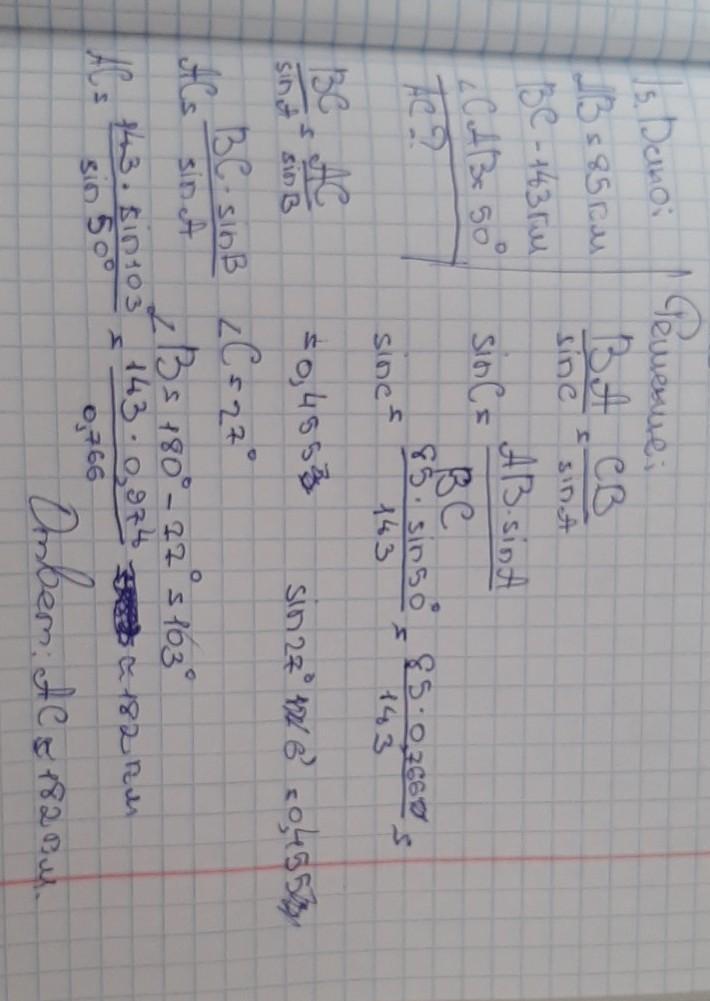 Дано:
AB = 85 км
BC - 143 км
∠CAB = 50°
AC - ?
Решение:
BA/sinC = CB/sinA
sinC = AB·sinA/BC
sinC = 85·sin50°/143 = 85·0,766/143 =
= 0,455
sin27° 6' = 0,455
∠C = 27°
∠B = 180° - 77° = 103°
BC/sinA = AC/sinB
AC = BC·sinB/sinA
AC = 143·sin103/sin50° = 143·0,974/0,766 ≈ 182 км
Ответ: AC = 182 км.